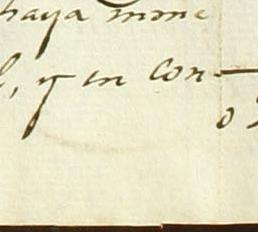 haya mone
l, y en con-
o